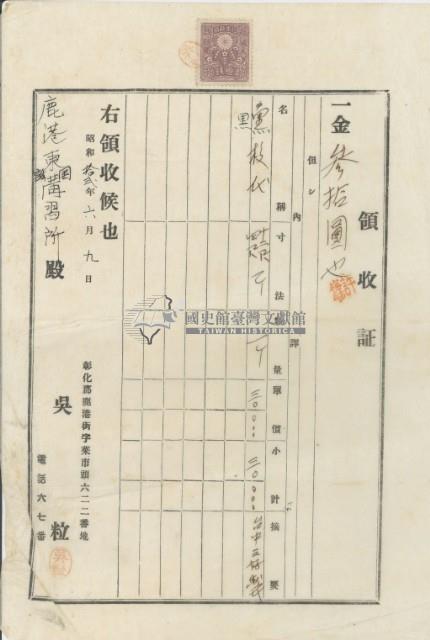 領收証
一金 參拾圓也
但シ
內譯
名稱 寸法 數量 單價 小計 摘要
黑板代 三〇〇〇 三〇〇〇
右領收候也
昭和拾弍年六月九日
彰化郡鹿港街字菜市頭六二二番地
吳粒
電話六七番
鹿港東國講習所殿
國史館臺灣文獻館
TAIWAN HISTORICA